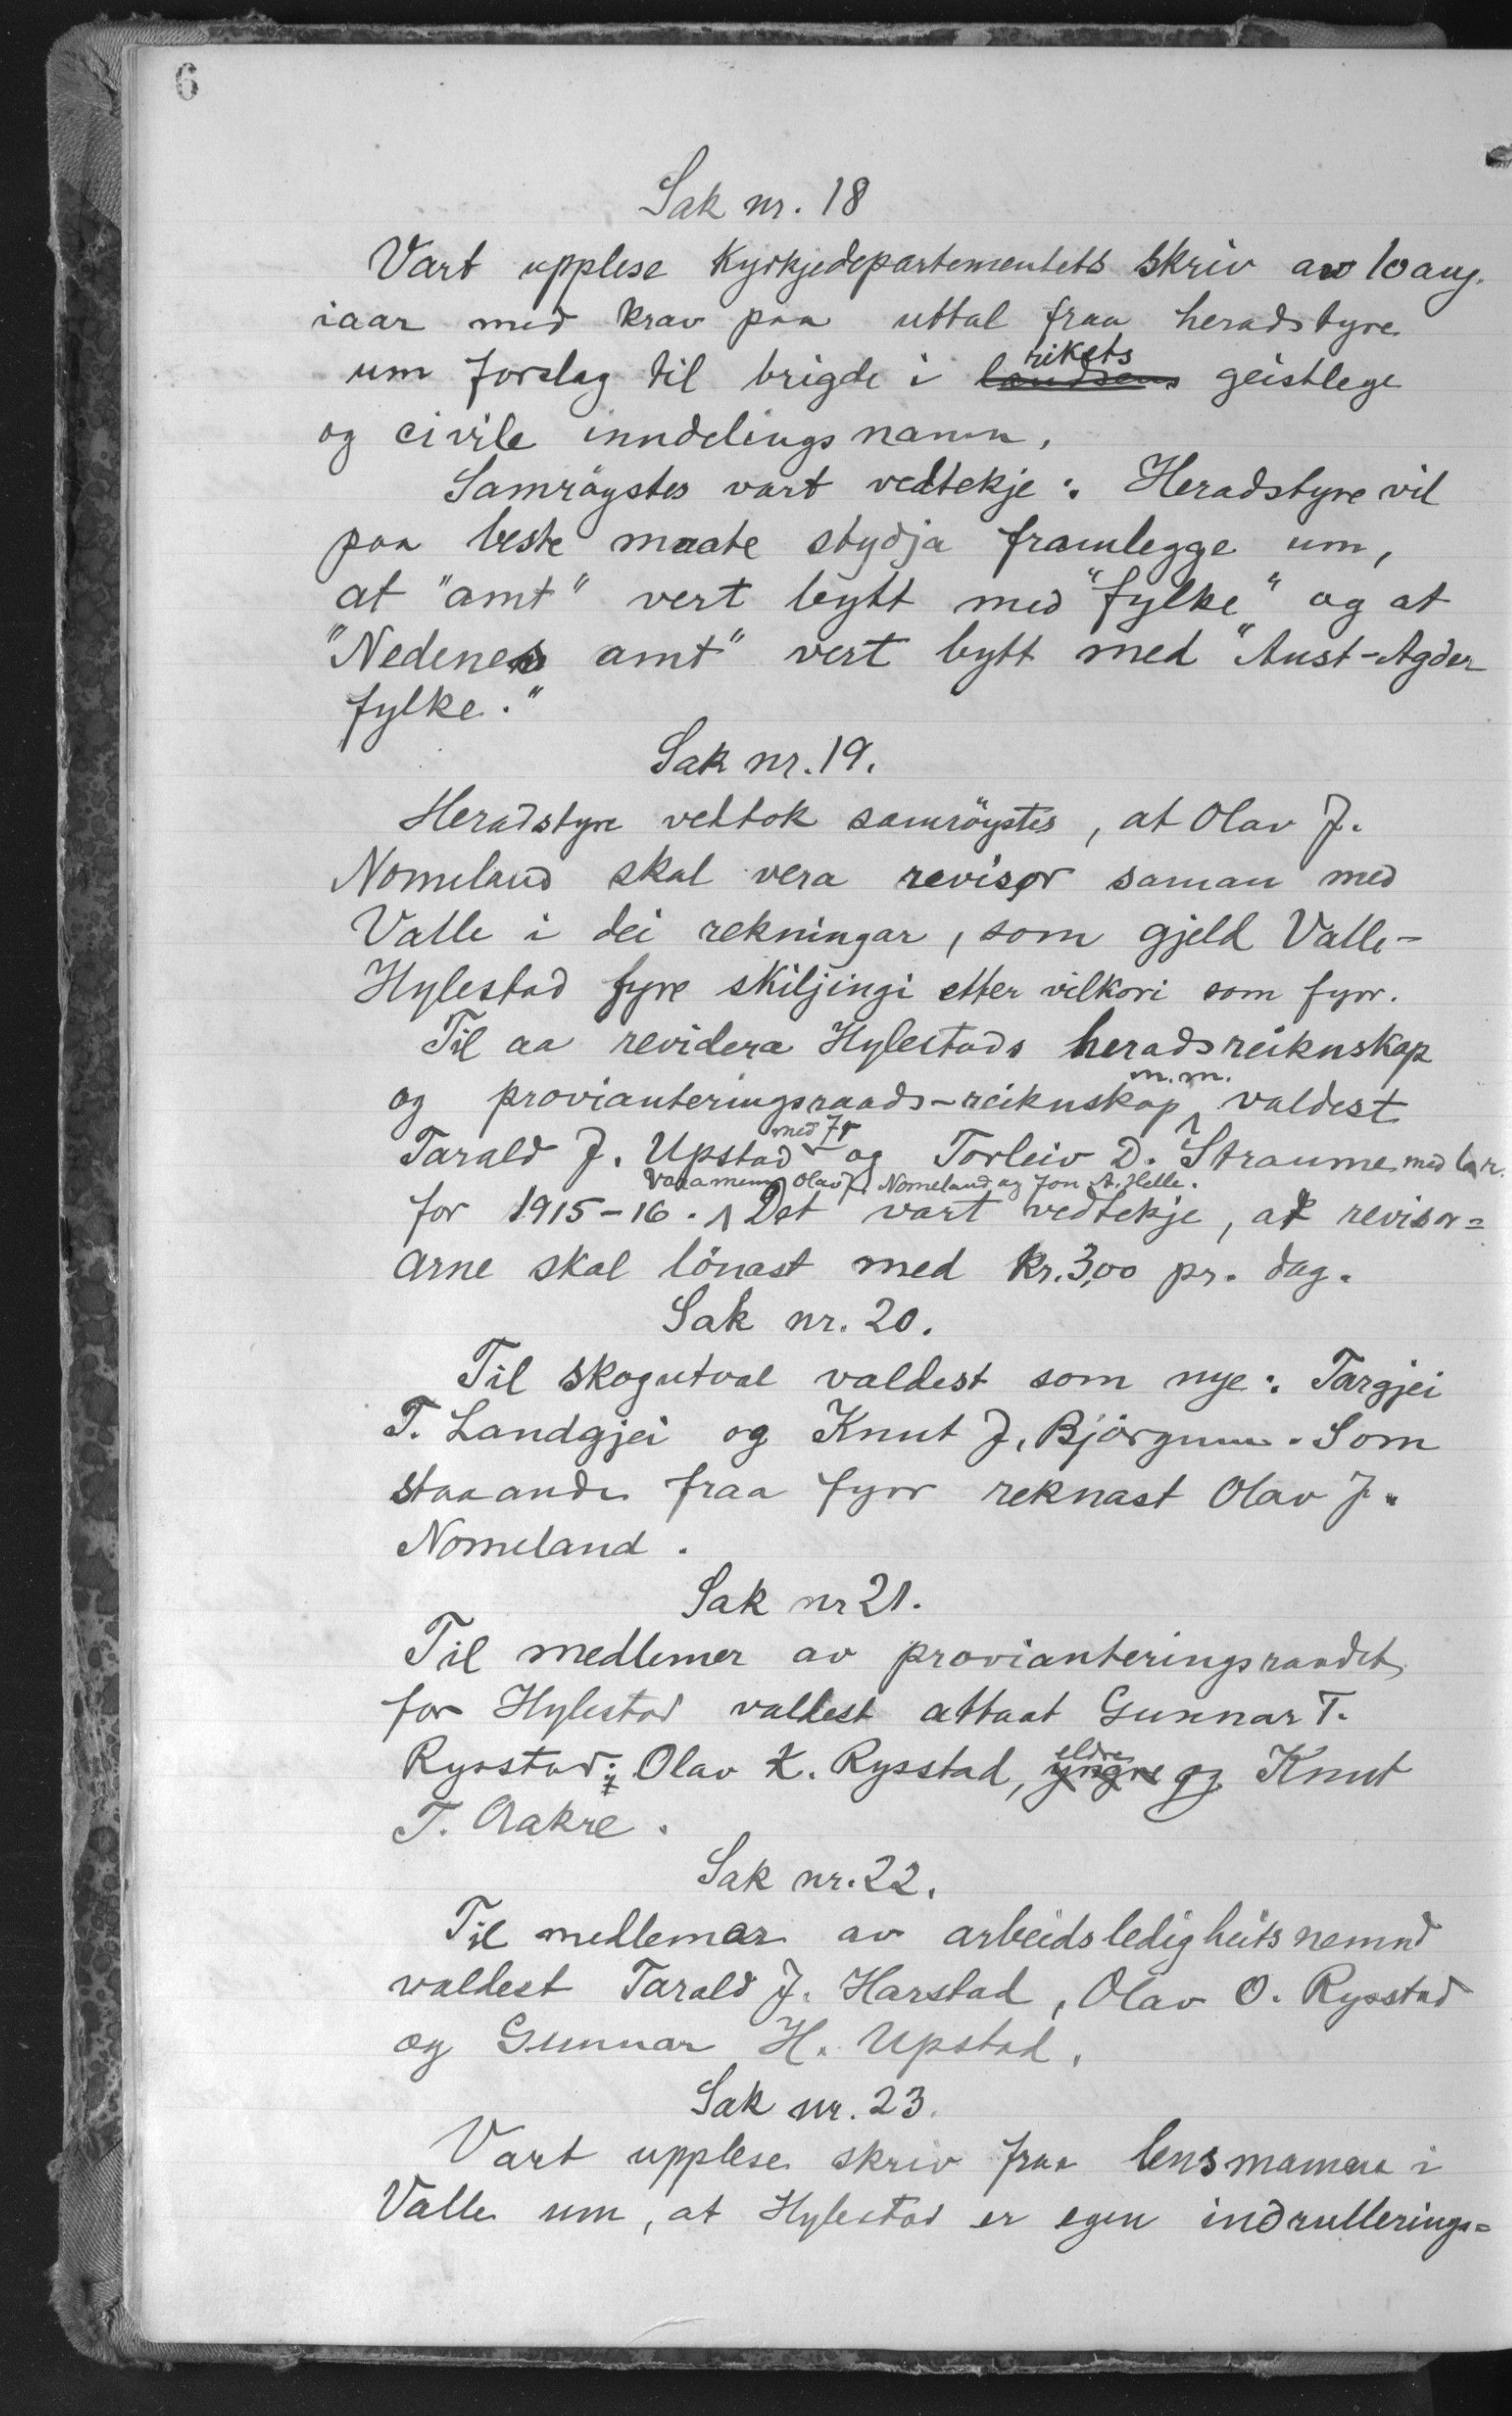 6
Sak nr. 18
Vart upplese Kyrkjedepartementets skriv av 10 aug.
iaar med krav paa uttal fraa heradstyre
um forslag til brigde i landsens rikets geistlege
og civile inndelings namn.
Samröystes vart vedtekje: Heradstyre vil
paa beste maate stydja framlegge um,
at "amt" vert bytt med "fylke" og at
"Nedenes amt" vert bytt med "Aust-Agder
fylke."
Sak nr. 19.
Heradstyre vedtok samröystes, at Olav J.
Nomeland skal vera revisor saman med
Valle i dei rekningar, som gjeld Valle-
Hylestad fyre skiljingi etter vilkori som fyrr.
Til aa revidera Hylestads heradsreiknskap
og provianteringsraads-reiknskap m.m. valdest
Tarald J. Upstad med 7 r og Torleiv D. Straume med 6 r.
Varamenn Olav J. Nomeland og Jon A. Helle.
for 1915-16. Det vart vedtekje, at revisor=
arne skal lönast med kr. 3,00 pr. dag.
Sak nr. 20.
Til skogutval valdest som nye: Targjei
T. Landgjei og Knut J. Björgum. Som
staaande fraa fyrr reknast Olav J.
Nomeland.
Sak nr 21.
Til medlemer av provianteringsraadet
for Hylestad valdest attaat Gunnar T.
Rysstad: Olav K. Rysstad, yngre eldre og Knut
T. Aakre.
Sak nr. 22.
Til medlemar av arbeidsledigheits nemnd
valdest Tarald J. Harstad, Olav O. Rysstad
og Gunnar H. Upstad.
Sak nr. 23.
Vart upplese skriv fraa lensmannen i
Valle um, at Hylestad er egen indrullerings=